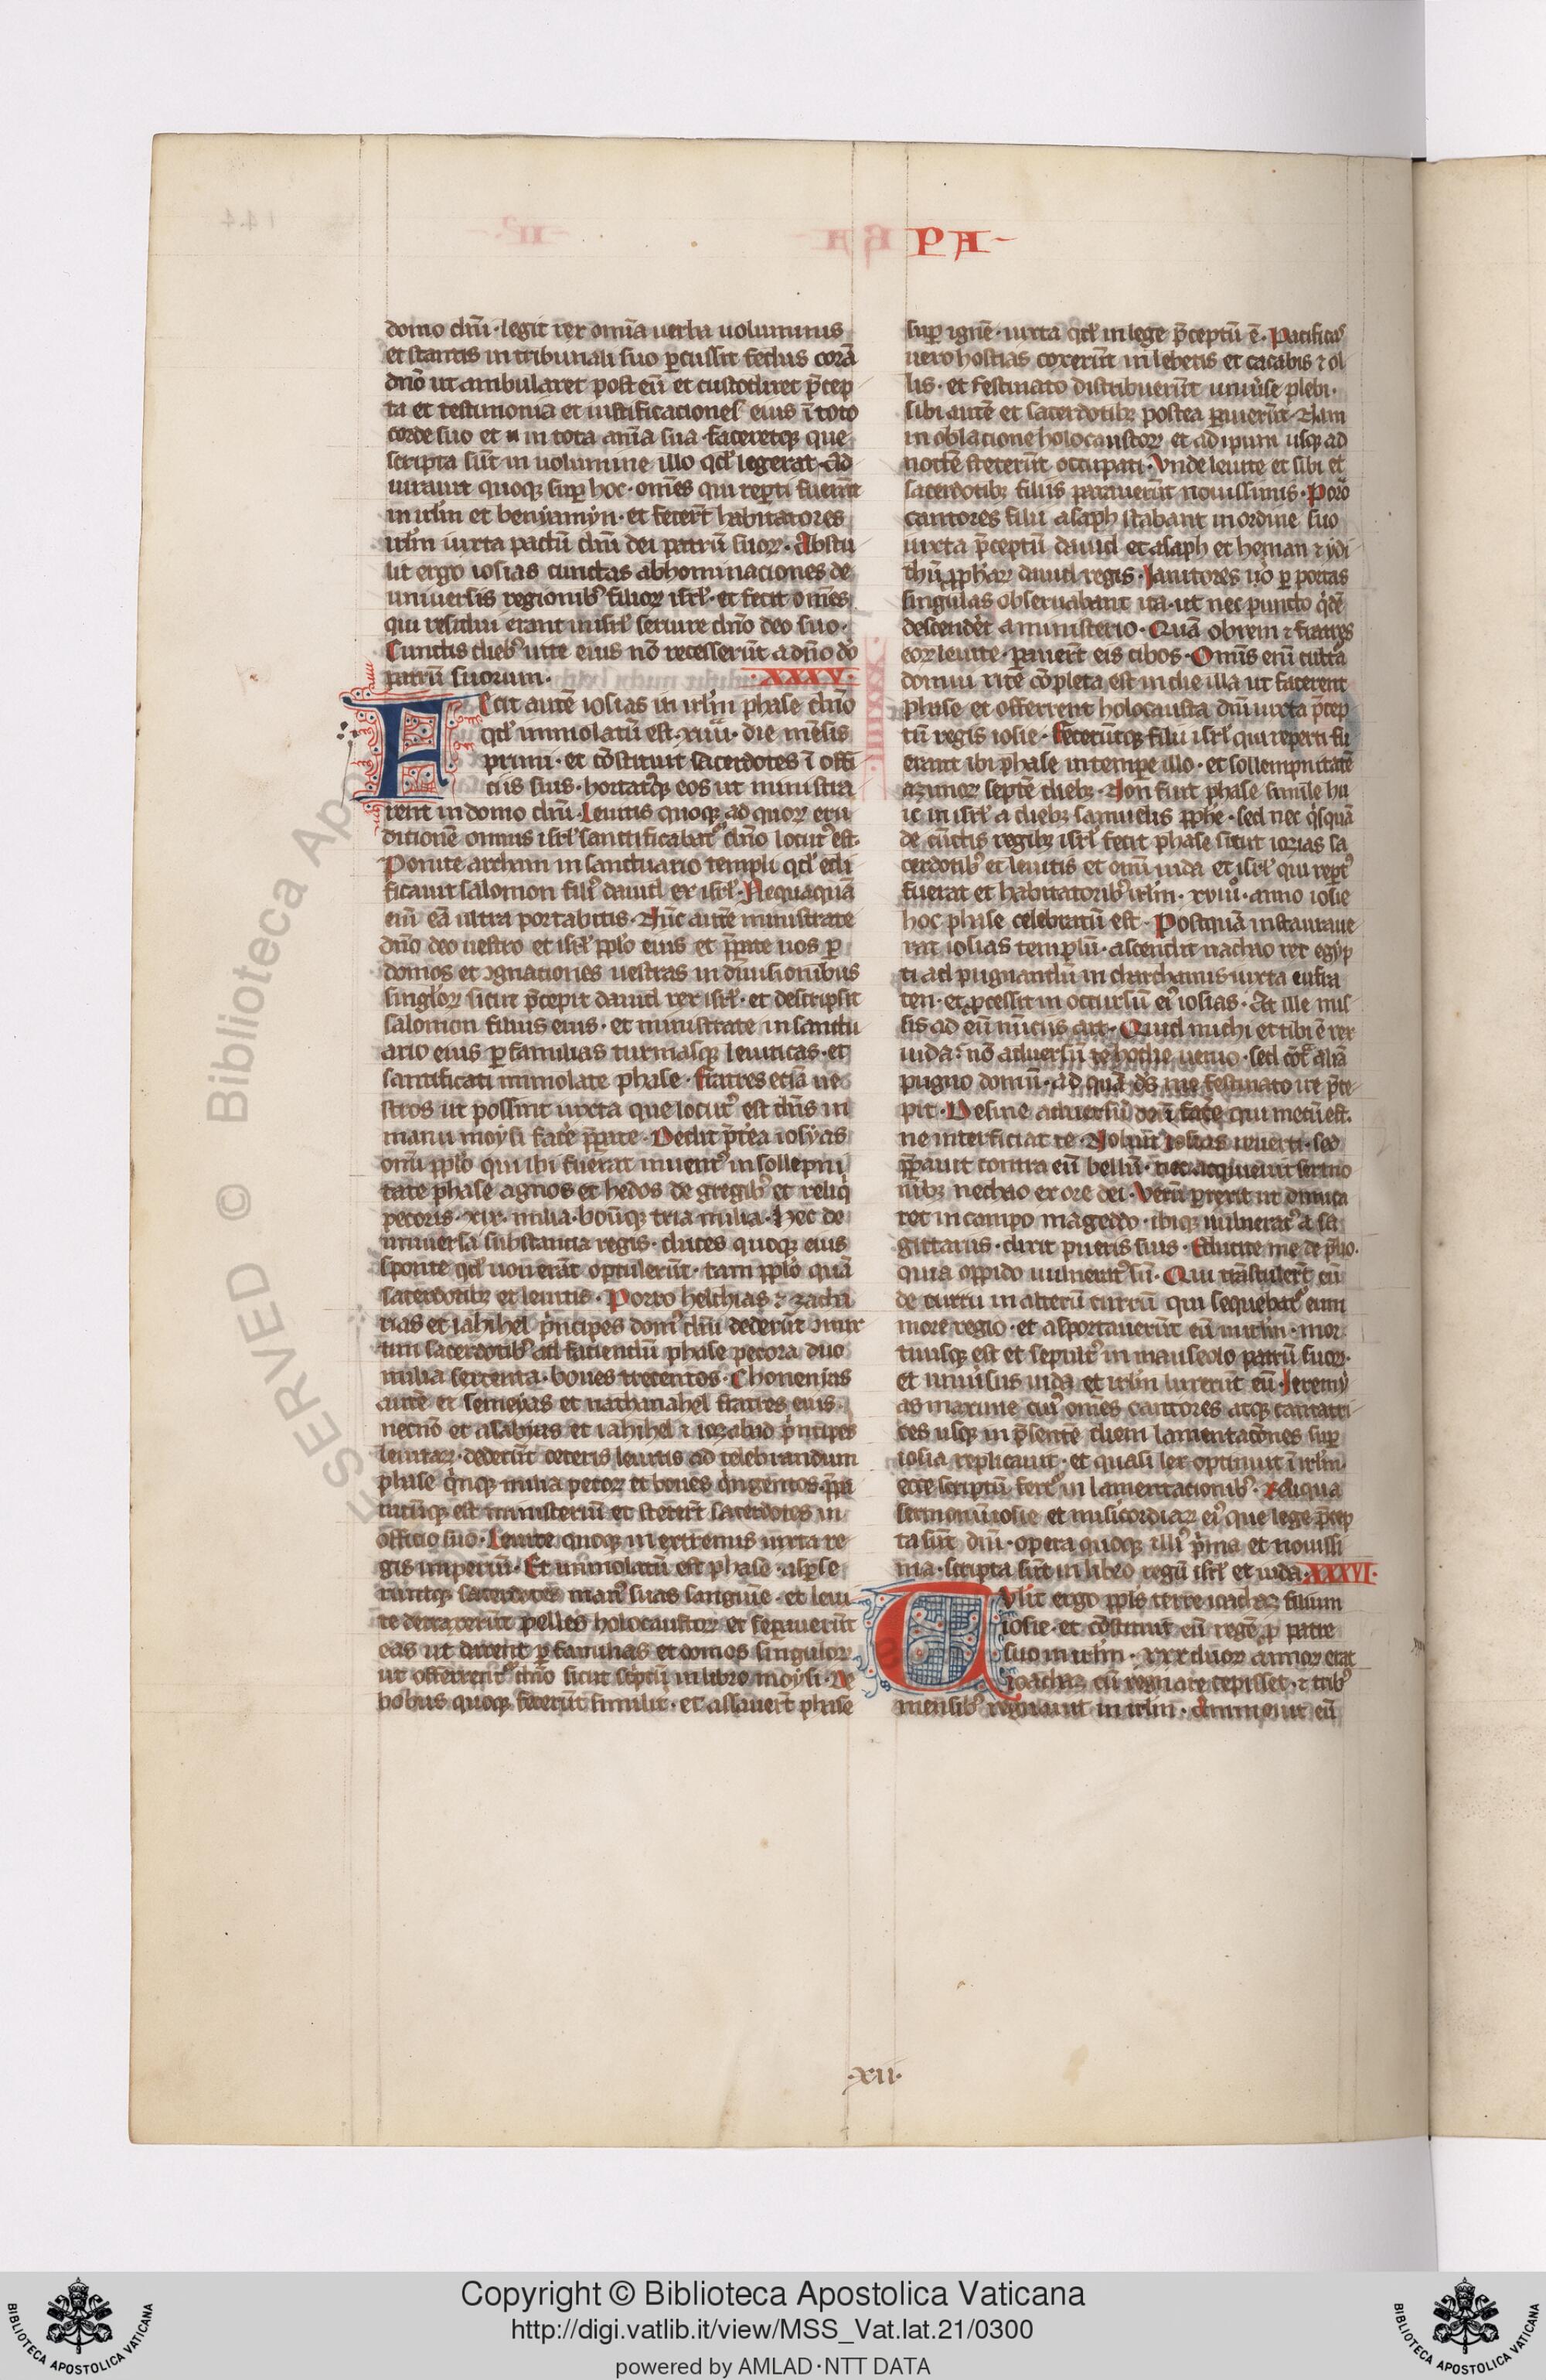 PA
domo dn̄i · legit rex om̄ia uerba uoluminis
et stans in tribunali suo ꝑcussit fedus corā
dn̄o ut ambularet post eū et custodiret p̄cep
ta et testimonia et iustificationes eius ī toto
corde suo et in tota anīa sua · faceretqꝫ que
scripta sūt in uolumine illo qd̓ legerat · Ad
iurauit quoqꝫ suꝑ hoc · om̄es qui reꝑti fuerāt
in irl̄m et beniamyn · et fecer̄t habitatores
irl̄m iuxta pactū dn̄i dei patrū suoꝝ · Abstu
lit ergo iosias cunctas abhominaciones de
uniuersis regionib⁹ filioꝝ isrl̓ · et fecit om̄es
qui residui erant in isrl̓ seruire dn̄o deo suo ·
Cunctis dieb⁹ uite eius nō recesserūt a dn̄o dō
patrū suorum · XXXV ·
FEcit autē iosias in irl̄m phase dn̄o
qd̓ immolatū est · xiiii · die mēsis
primi · et cōstituit sacerdotes ī offi
ciis suis · hortatꝰqꝫ eos ut ministra
rent in domo dn̄i · Leuitis quoqꝫ ad quoꝝ eru
ditionē omnis isrl̓ sanctificabat᷑ dn̄o locut⁹ est ·
Ponite archam in sanctuario templi qd̓ edi
ficauit salomon fili⁹ dauid rex isrl̓ · Nequaquā
eni eā ultra portabitis · Nūc autē ministrate
dn̄o deo uestro et isrl̓ ppl̓o eius et p̄parate uos ꝑ
domos et ꝯgnationes uestras in diuisionibus
singl̓oꝝ sicut p̄cepit dauid rex isrl̓ · et descripsit
salomon filius eius · et ministrate in sanctu
ario eius ꝑ familias turmasqꝫ leuiticas · et
sanctificati immolate phase · fratres etiā ue
stros ut possint iuxta que locut⁹ est dn̄s in
manu moysi face᷑ p̄parate · Dedit p̄t̓ea iosyas
om̄i ppl̓o qui ibi fuerat inuent⁹ in sollepni
tate phase agnos et hedos de gregib⁹ et reliq̇
pecoris · xxx · milia · boūqꝫ tria milia · Hec de
uniuersa substantia regis · duces quoqꝫ eius
sponte qd̓ uouerāt optulerūt · tam ppl̓o quā
sacerdotibꝫ et leuitis · Porro helchias ⁊ zacha
rias et iahihel ṗncipes dom⁹ dn̄i dederūt
sacerdotib⁹ ad faciendū phase pecora duo
milia sexcenta · boues trecentos · Chonenias
autē et semeyas et nathanahel fratres eius ·
necnō et asabias et iahihel ⁊ iozabad ṗncipes
leuitaꝝ · dederūt ceteris leuitis ad celebrandum
phase q̇nqꝫ milia pecoꝝ et boues q̇ngentos · p̄pa
ratūqꝫ est ministeriū et steter̄t sacerdotes in
officio suo · Leuite quoqꝫ in extremis iuxta re
gis imperiū · Et immolatū est phase · asꝑse
rūtqꝫ sacerdotes man⁹ suas sanguīe · et leui
te detraxerūt pelles holocaustoꝝ et seꝑauerūt
eas ut darent ꝑ familias et domos singuloꝝ
ut offerrent᷑ dn̄o sicut sc̓ptū in libro moysi · De
bobus quoqꝫ fecerūt similit̓ · et assauer̄t phase
suꝑ ignē · iuxta qd̓ in lege p̄ceptū ē · Pacificas
uero hostias coxerūt in lebetis et cacabis ⁊ ol
lis · et festinato distribuerūt uniu̓se plebi ·
sibi autē et sacerdotibꝫ postea ꝑauerūt · Nam
in oblacione holocaustoꝝ et adipum usqꝫ ad
noctē steterūt occupati · Vnde leuite et sibi et
sacerdotibꝫ filiis parauerūt nouissimis · Poro
cantores filii asaph stabant in ordine suo
iuxta p̄ceptū dauid et asaph et heman ⁊ ydi
thū ꝓphetaꝝ dauid regis · Ianitores uo̓ ꝑ portas
singulas obseruabant ita · ut nec puncto q̇dē
descendēt a ministerio · Quā obrem ⁊ fratres
eoꝝ leuite · ꝑauer̄t eis cibos · Omīs eni cultꝰa
domini rite cōpleta est in die illa ut facerent
phase et offerrent holocausta dn̄i iuxta p̄cep
tū regis iosie · Fecerūtqꝫ filii isrl̓ qui reperti fu
erant ibi phase in tempe illo · et sollempnitatē
azimoꝝ septē diebꝫ · Non fuit phase simile hu
ic in isrl̓ a diebꝫ samuelis ꝓph̓e · sed nec q̇squā
de cūctis regibꝫ isrl̓ fecit phase sicut iozias sa
cerdotib⁹ et leuitis et om̄i iuda et isrl̓ qui reꝑt⁹
fuerat et habitatorib⁹ irl̄m · xviii⁰ · anno iosie
hoc phase celebratū est · Postquā instauraue
rat iosias templū · ascendit nachao rex egyp
ti ad pugnandū in charchamis iuxta eufra
ten · et ꝓcessit in occursū ei⁹ iosias · At ille mis
sis ad eū nūciis ait · Quid michi et tibi ē rex
iuda · nō aduersū te hodie uenio · sed cōt̓ aliā
pugno domū · ad quā ds̄ me festinato ire p̄ce
pit · Desine aduersū dm̄ face᷑ qui mecū est ·
ne interficiat te · Noluit iosias reuerti · sed
p̄parauit contra eū bellū · nec acquieuit sermo
nibꝫ nechao ex ore dei · Verū ꝑrexit ut dimica
ret in campo mageddo · ibiqꝫ uulnerat⁹ a sa
gittariis · dixit pueris suis · Educite me de p̄lio ·
quia oppido uulnerat⁹ sū · Qui trāstuler̄t eū
de curru in alterū currū qui sequebat᷑ eum
more regio · et asportauerūt eū in irl̄m · mor
tuusqꝫ est et sepult⁹ in mauseolo patrū suoꝝ ·
et uniu̓sus iuda et irl̄m luxerūt eū · Ieremy
as maxime cui⁹ om̄es cantores atqꝫ cantatri
ces usqꝫ in p̄sentē diem lamentacōnes suꝑ
iosia replicauit · et quasi lex optinuit ī irl̄m
ecce scriptū fert᷑ in lamentacionib⁹ · Reliqua
sermonū iosie et mis̓icordiaꝝ ei⁹ que lege p̄cep
ta sūt dn̄i · opera quoqꝫ illi⁹ ṗma et nouissi
ma · scripta sūt in libro regū isrl̓ et iuda · XXXVI ·
TVlit ergo ppl̓s terre ioachaz filium
iosie · et cōstituit eū regē ꝓ patre
suo in irl̄m · xxx duoꝝ annoꝝ erat
ioachaz cū regnare cepisset · ⁊ trib⁹
mensib⁹ regnauit in irl̄m · Ammouit eū
·xii·
Copyright © Biblioteca Apostolica Vaticana
http://digi.vatlib.it/view/MSS_Vat.lat.21/0300
powered by AMLAD·NTT DATA
BIBLIOTECA APOSTOLICA VATICANA
BIBLIOTECA APOSTOLICA VATICANA